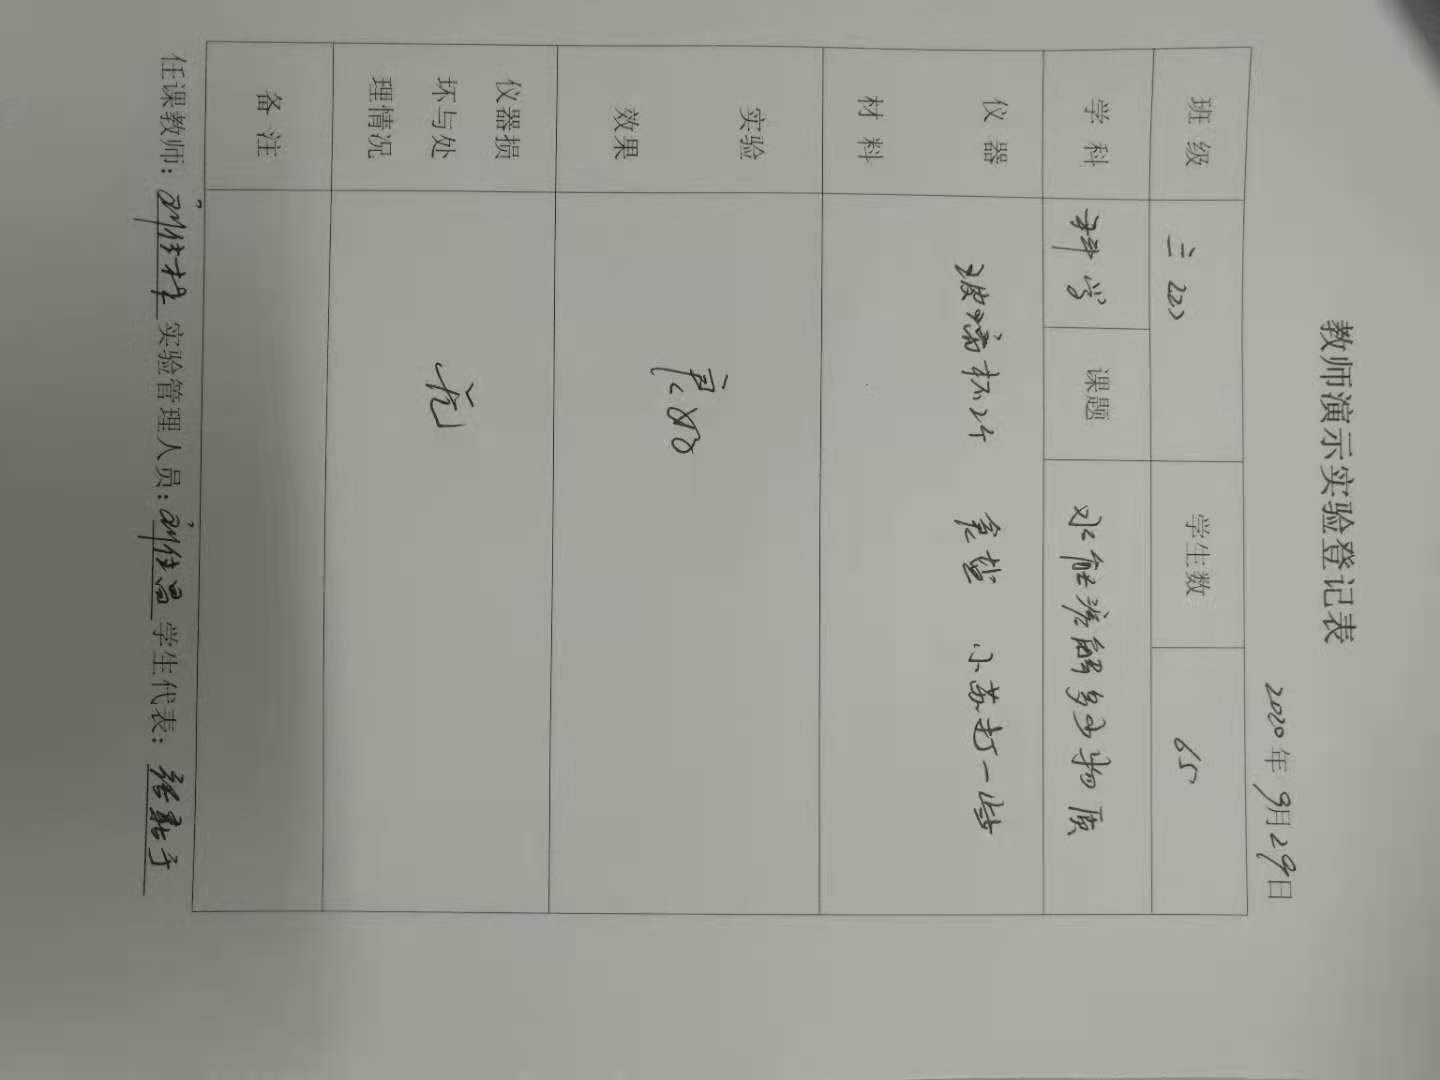 教师演示实验登记表
2020年9月29日
班级 三(2) 学生数 65
学科 科学 课题 水能溶解多少物质
仪器 玻璃杯2个 食盐 小苏打一些
材料
实验
效果 良好
仪器损
坏与处 无
理情况
备注
任课教师: 实验管理人员: 学生代表: